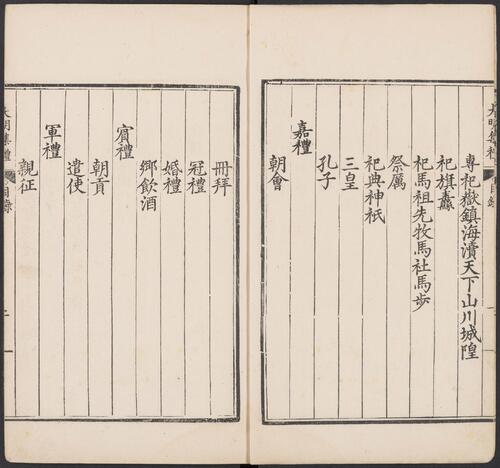 專祀嶽鎮海瀆天下山川城隍
祀旗纛
祀馬祖先牧馬社馬步
祭厲
祀典神祇
三皇
孔子
嘉禮
朝會
冊拜
冠禮
婚禮
鄉飲酒
賓禮
朝貢
遣使
軍禮
親征
大明集禮 目錄